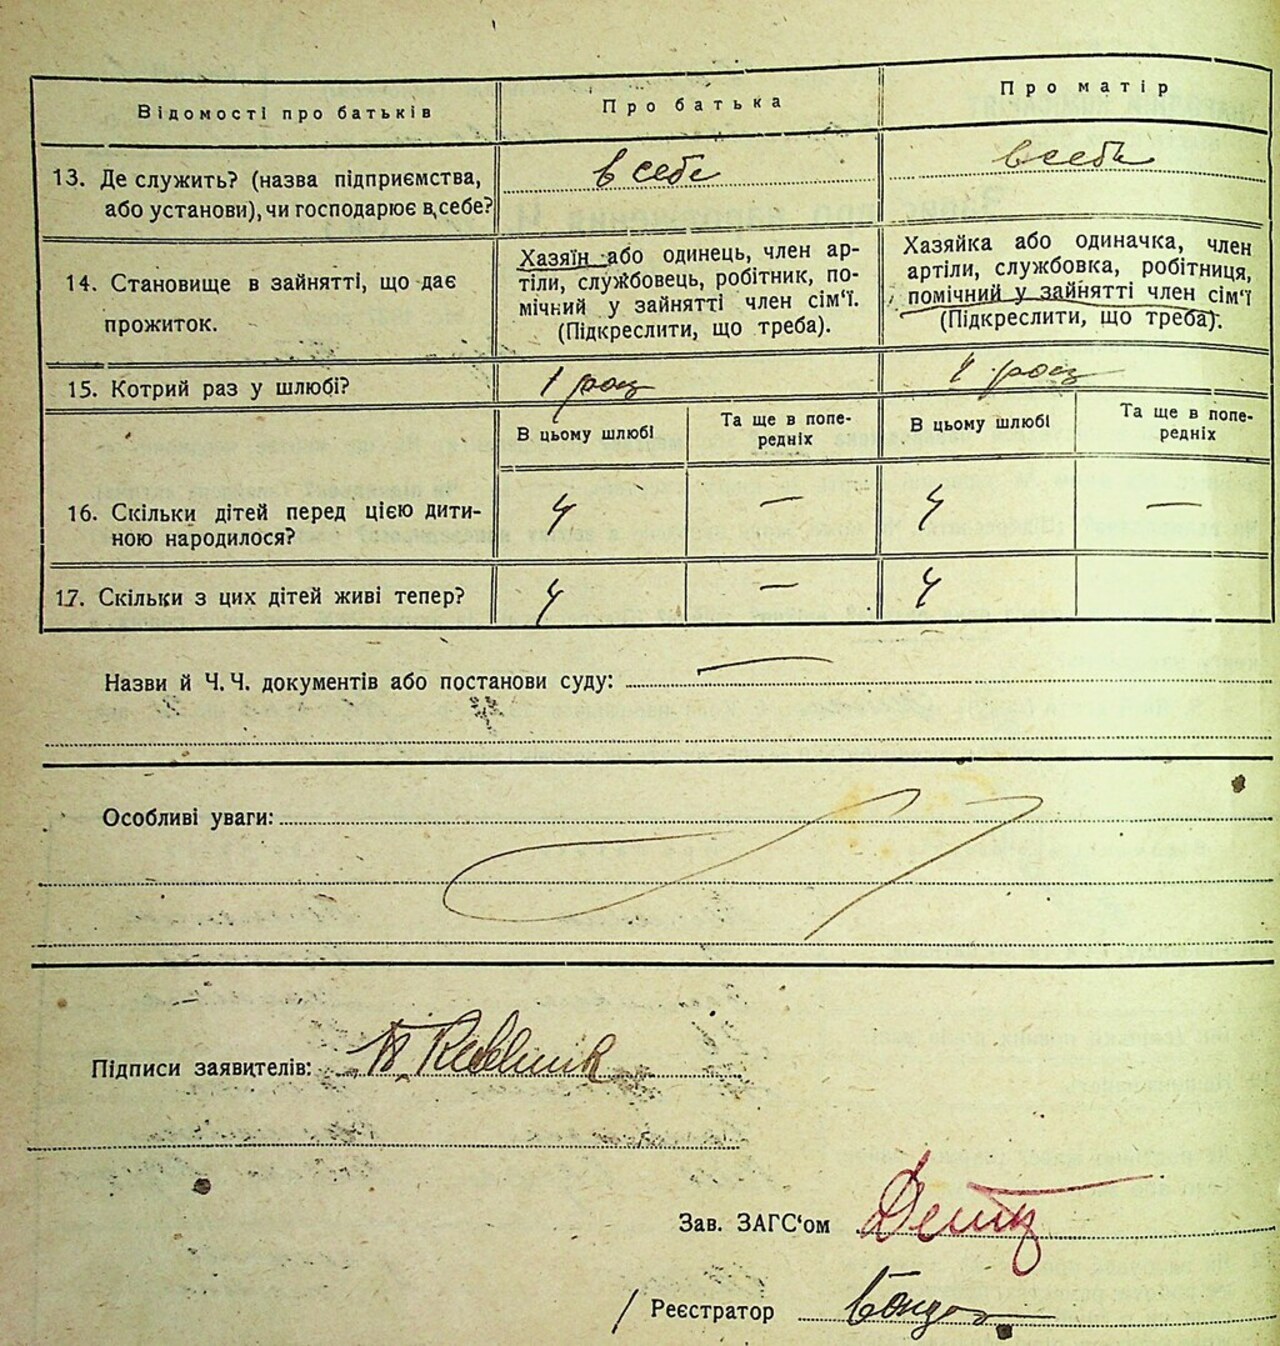 Відомості про батьків
Про батька
Про матір
13. Де служить? (назва підприємства,
або установи), чи господарює в себе?
в себе
в себе
14. Становище в зайнятті, що дає
прожиток.
Хазяїн або одинець, член ар-
тіли, службовець, робітник, по-
мічний у зайнятті член сім'ї.
(Підкреслити, що треба).
Хазяйка або одиначка, член
артіли, службовка, робітниця,
помічний у зайнятті член сім'ї
(Підкреслити, що треба).
15. Котрий раз у шлюбі?
1 раз
1 раз
В цьому шлюбі
Та ще в попе-
редніх
В цьому шлюбі
Та ще в попе-
редніх
16. Скільки дітей перед цією дити-
ною народилося?
4 — 4 —
17. Скільки з цих дітей живі тепер?
4 — 4
Назви й Ч. Ч. документів або постанови суду: —
Особливі уваги:
Підписи заявителів:
Зав. ЗАГС'ом
Реєстратор